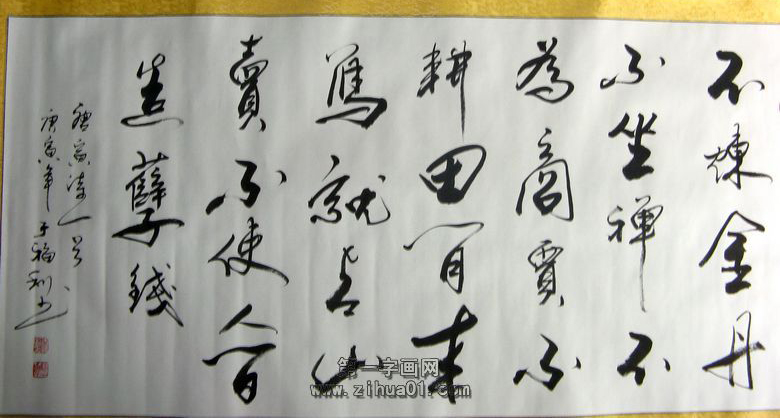 不煉金丹
不坐禪不
為商賈不
耕田閒來
寫就青山
賣不使人間
造孽錢
唐寅诗一首
庚寅年于福利书
第一字画网
www.zihua01.com